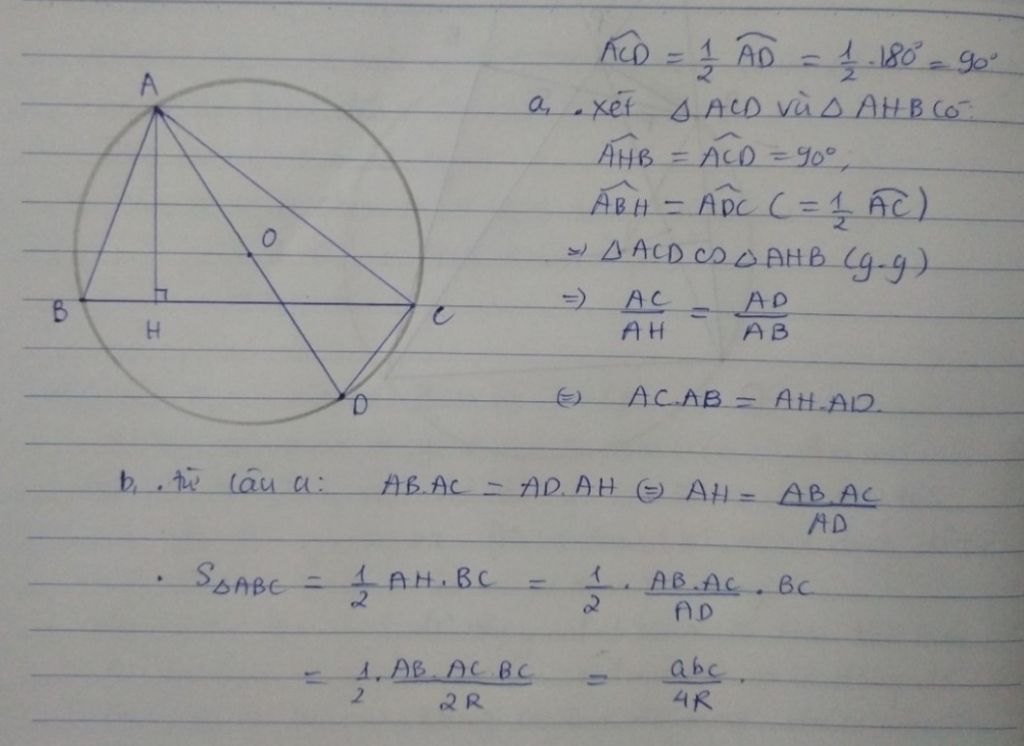 A
O
B
H
C
D
ACD = 1/2 AD = 1/2 . 180° = 90°
a, . Xét Δ ACD và Δ AHB có:
AHB = ACD = 90°,
ABH = ADC ( = 1/2 AC )
=> Δ ACD ∽ Δ AHB (g-g)
=> AC/AH = AD/AB
<=> AC.AB = AH.AD.
b, . từ câu a: AB.AC = AD.AH <=> AH = AB.AC/AD
. SΔABC = 1/2 AH.BC = 1/2 . AB.AC/AD . BC
= 1/2 . AB.AC.BC/2R = abc/4R .